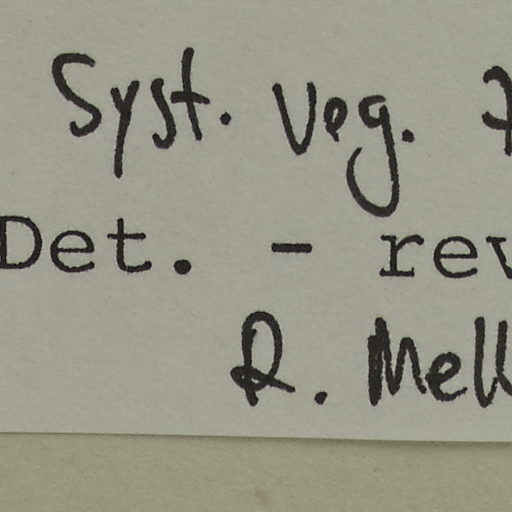 Syst. Veg. 7
Det. - rev
R. Mell